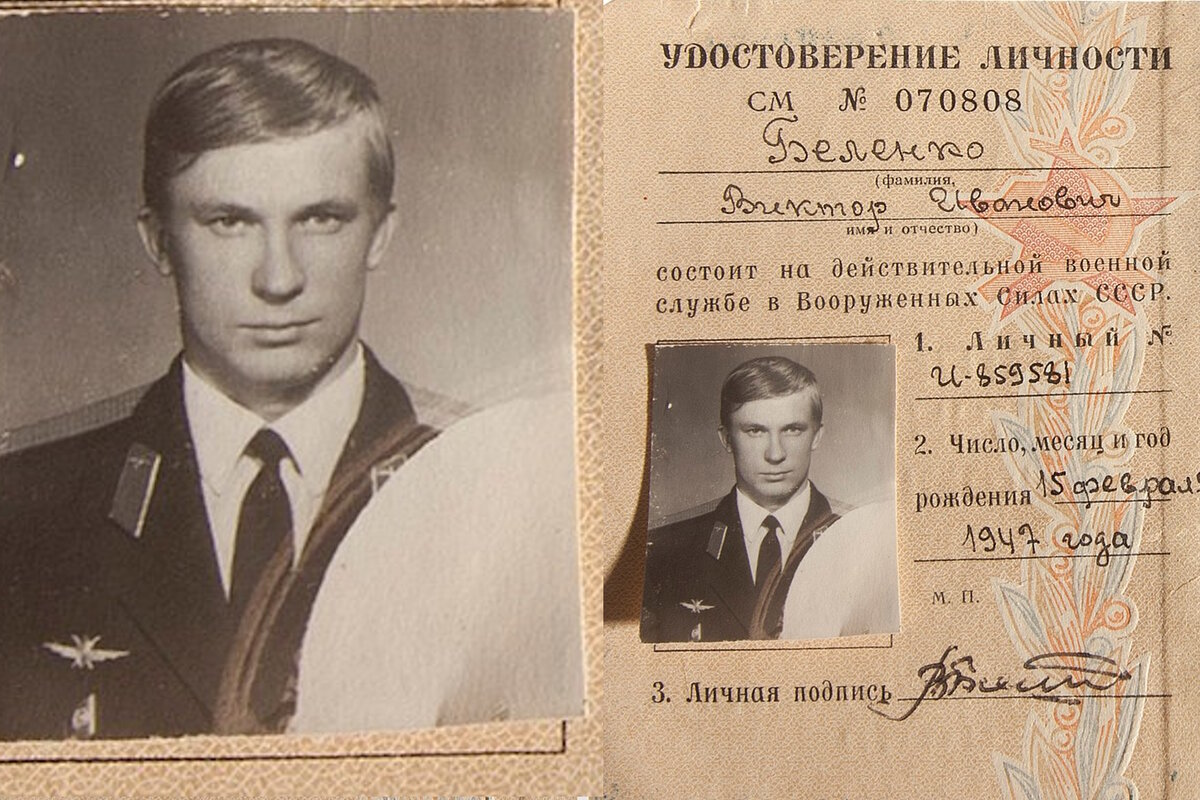 УДОСТОВЕРЕНИЕ ЛИЧНОСТИ
СМ № 070808
Беленко
(фамилия,
Виктор Иванович
имя и отчество)
состоит на действительной военной
службе в Вооруженных Силах СССР.
1. Личный №
И-859581
2. Число, месяц и год
рождения 15 феврал
1947 года
М. П.
3. Личная подпись